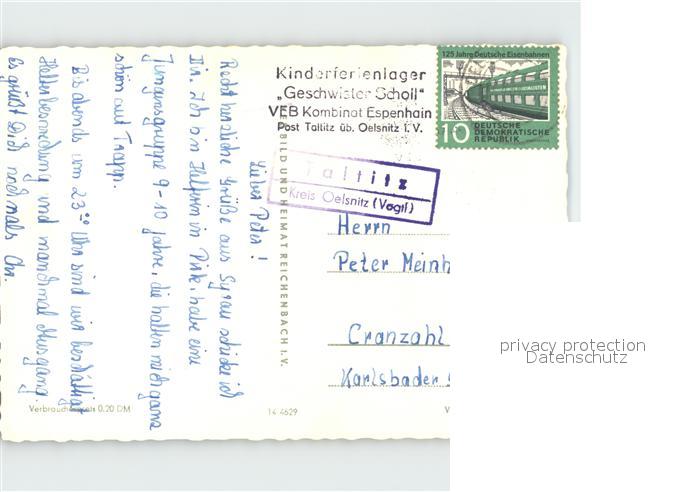 Kinderferienlager
„Geschwister Scholl"
VEB Kombinat Espenhain
Post Taltitz üb. Oelsnitz i. V.
125 Jahre Deutsche Eisenbahnen
10 DEUTSCHE
DEMOKRATISCHE
REPUBLIK
Taltitz
Kreis Oelsnitz (Vogtl)
BILD UND HEIMAT REICHENBACH I.V.
Lieber Peter!
Recht herzliche Grüße aus Syrau schicke ich
Dir. Ich bin Helferin in Pirk, habe eine
Jungensgruppe 9-10 Jahre, die halten mich ganz
schön auf Trapp.
Bis abends um 23°° Uhr sind wir beschäftigt
Helferbesprechung und manchmal Ausgang.
Es grüßt Dich nochmals Chr.
Herrn
Peter Meinh
Cranzahl
Karlsbader
Verbraucherpreis 0.20 DM
14 4629
V
privacy protection
Datenschutz